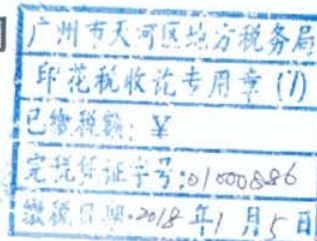 广州市天河区地方税务局
印花税收讫专用章(1)
已缴税额:¥
完税凭证字号:01000886
缴税日期:2018年1月5日